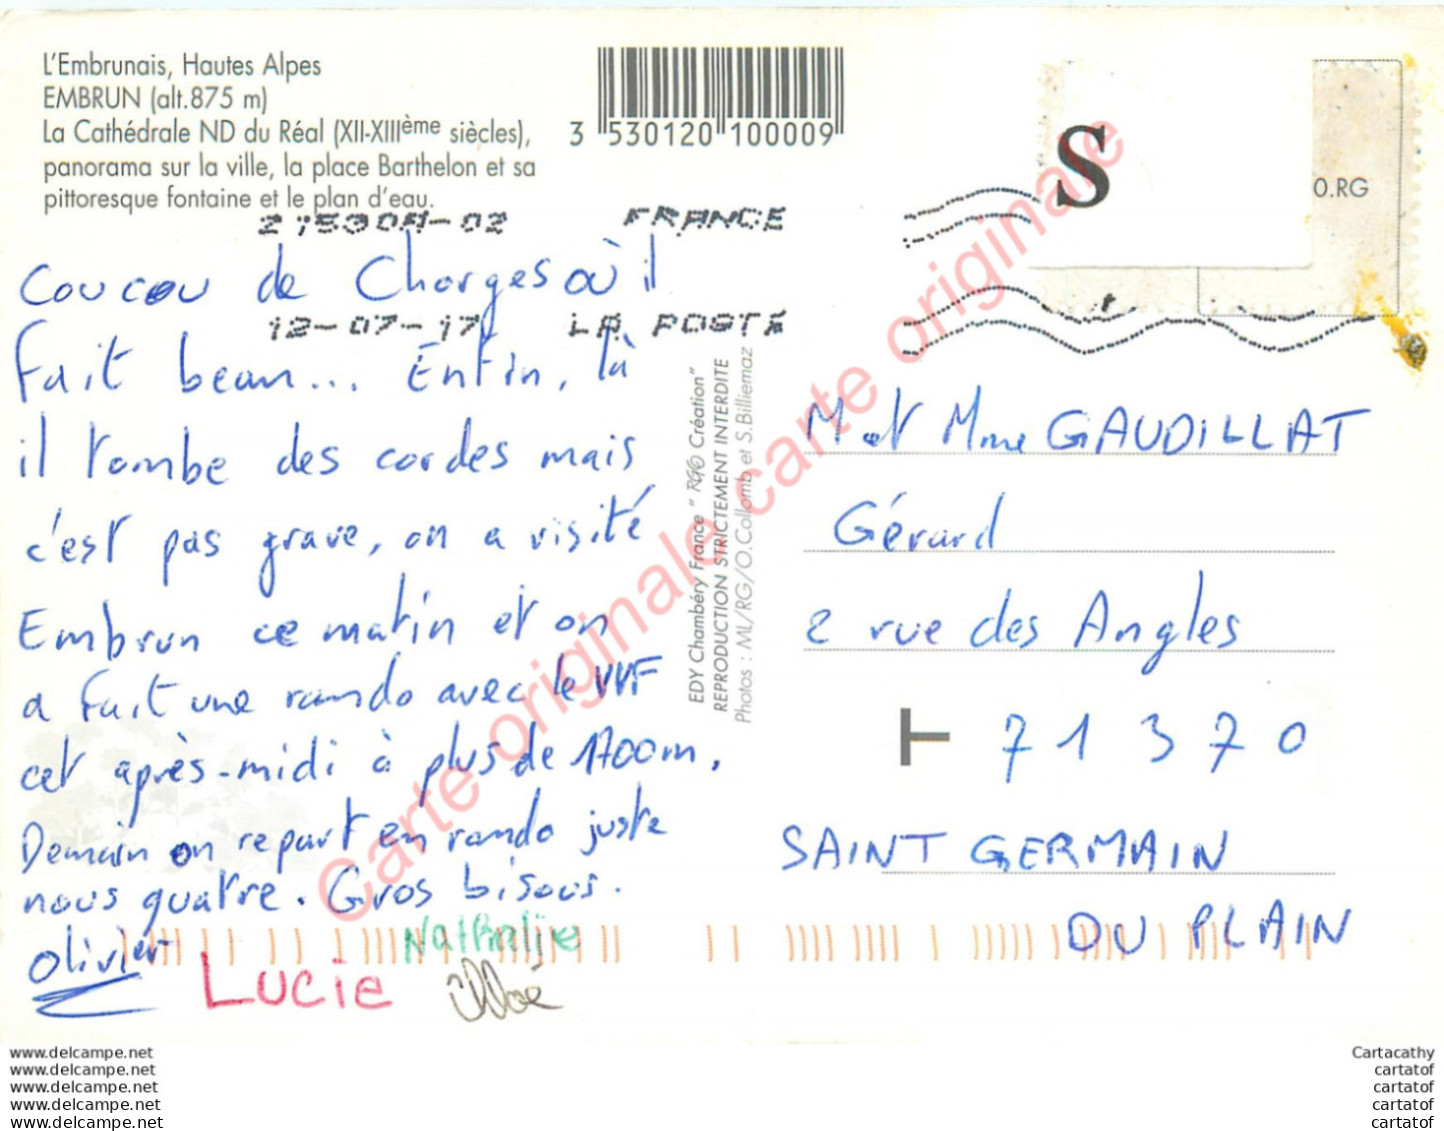 L'Embrunais, Hautes Alpes
EMBRUN (alt.875 m)
La Cathédrale ND du Réal (XII-XIIIème siècles),
panorama sur la ville, la place Barthelon et sa
pittoresque fontaine et le plan d'eau.
3 530120 100009
S
O.RG
27530A-02 FRANCE
12-07-17 LA POSTE
Coucou de Chorges où il
Fait beau... Enfin, là
il tombe des cordes mais
c'est pas grave, on a visité
Embrun ce matin et on
a fait une rando avec le VVF
cet après-midi à plus de 1700m.
Demain on repart en rando juste
nous quatre. Gros bisous.
Olivier
Nathalie
Lucie
Chloé
EDY Chambéry France " RGO Création"
REPRODUCTION STRICTEMENT INTERDITE
Photos : ML/RG/O.Collomb et S.Billiemaz
M et Mme GAUDILLAT
Gérard
2 rue des Angles
T 71370
SAINT GERMAIN
DU PLAIN
Carte originale carte originale
www.delcampe.net
www.delcampe.net
www.delcampe.net
www.delcampe.net
www.delcampe.net
Cartacathy
cartatof
cartatof
cartatof
cartatof